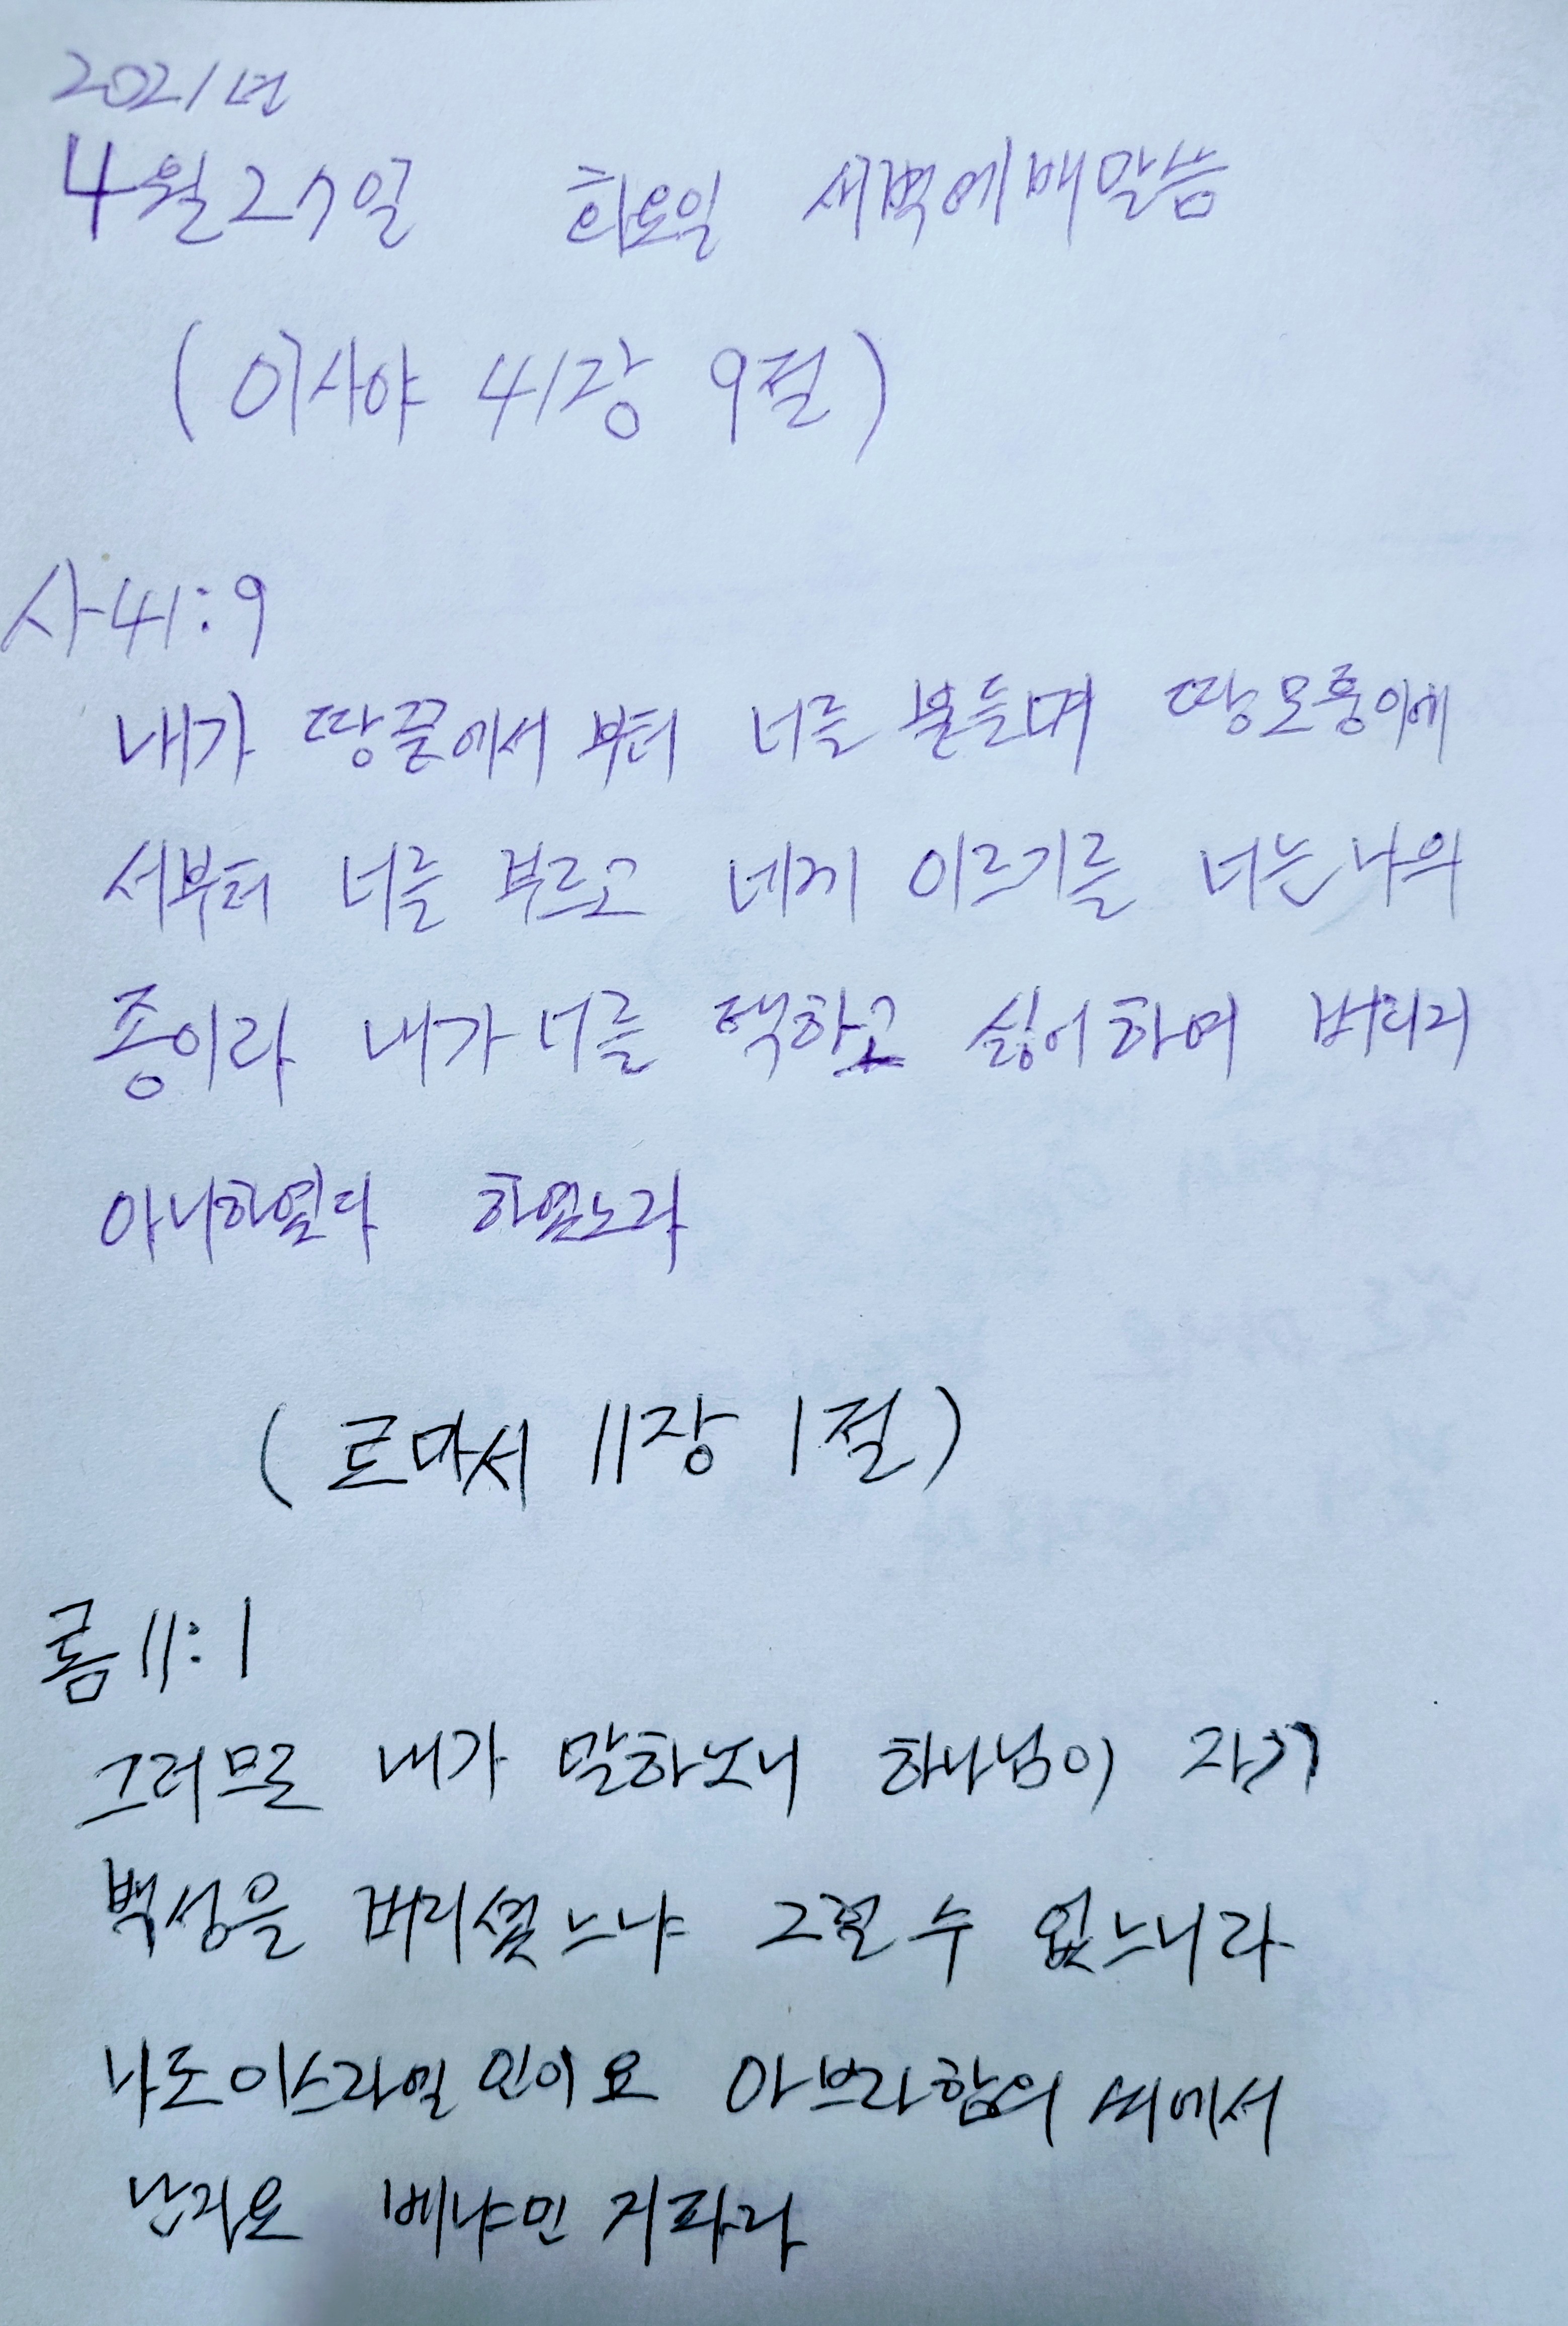 2021년
4월 27일 화요일 새벽예배말씀
(이사야 41장 9절)
사41:9
내가 땅끝에서 부터 너를 붙들며 땅모퉁이에
서부터 너를 부르고 네게 이르기를 너는 나의
종이라 내가 너를 택하고 싫어하여 버리지
아니하였다 하였노라
(로마서 11장 1절)
롬11:1
그러므로 내가 말하노니 하나님이 자기
백성을 버리셨느냐 그럴 수 없느니라
나도 이스라엘 인이요 아브라함의 씨에서
난자요 베냐민 지파라